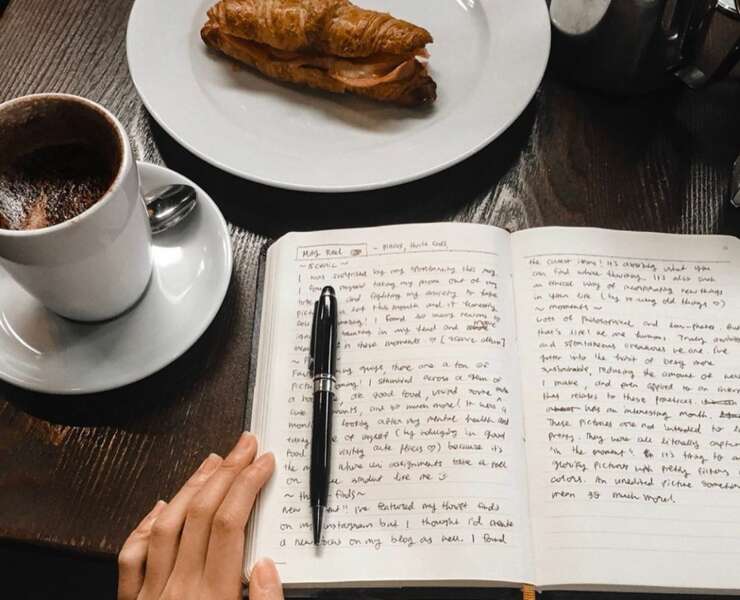 May Reel - places, thrift finds,
~ SCENIC ~
I was surprised by my spontaneity this may.
found myself taking my phone out of my
and fighting my anxiety to take
pictures a lot this month and it honestly
I found so many reasons to
in my head and
in these moments ♡ [scenic album]
guys, there are a ton of
coming! I stumbled across a gem of
a good food, weird some
cute and so much more! It was a
month looking after my mental health and
taking of myself (by indulging in good
food visiting cute places ♡) because it's
the where uni assignments take a toll
on student like me
~ finds ~
new I've featured my thrift finds
on my instagram but I thought I'd create
a new on my blog as well. I found
the cutest items! It's amazing what you
can find while thrifting. It's also such
an ethical way of incorporating new things
in your life (by re-using old things ♡)
~ moments ~
Lots of philosophical and
that's life! we are human. Truly
and spontaneous creatures we are. I've
into the habit of being more
sustainable, reducing the amount of
I make, and even applied to an
that relates to these practices.
has an interesting month.
These pictures are not intended to
pretty. They were all literally
"in the moment". It's to
glorify pictures with pretty filters
colors. An unedited picture
mean so much more!.